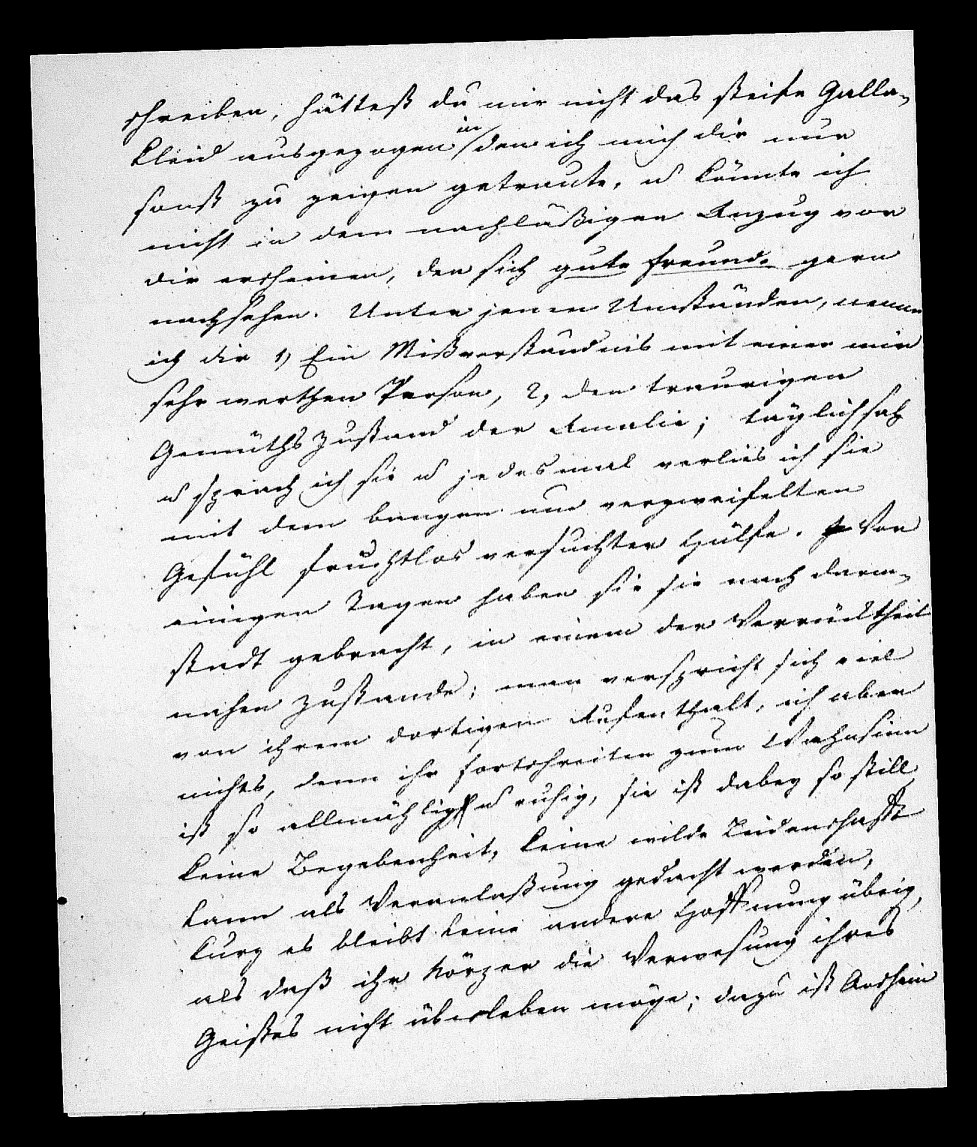 schreiben, hättest du mir nicht das steife Galla-
kleid ausgezogen in dem ich mich dir nur
sonst zu zeigen getraute, u könnte ich
nicht in dem nachläßigen Anzug vor
dir erscheinen, den sich gute Freunde gern
nachsehen. Unter jenen Umständen, nenne
ich dir 1, Ein Mißverständnis mit einer mir
sehr werthen Person, 2, den traurigen
Gemüthszustand der Amalie; täglich sah
u sprach ich sie u jedesmal verlies ich sie
mit dem bangen und verzweifelten
Gefühl fruchtlos versuchter Hülfe. Vor
einigen Tagen haben sie sie nach Darm-
stadt gebracht, in einem der Verrücktheit
nahen Zustande; man verspricht sich viel
von ihrem dortigen Aufenthalt, ich aber
nichts, denn ihr fortschreiten zum Wahnsinn
ist so allmählig u ruhig, sie ist dabey so still,
keine Begebenheit, keine wilde Leidenschafft
kann als Veranlaßung gedacht werden,
kurz es bleibt keine andere Hoffnung übrig,
als daß ihr Körper die Verwesung ihres
Geistes nicht überleben möge; dazu ist Anschein